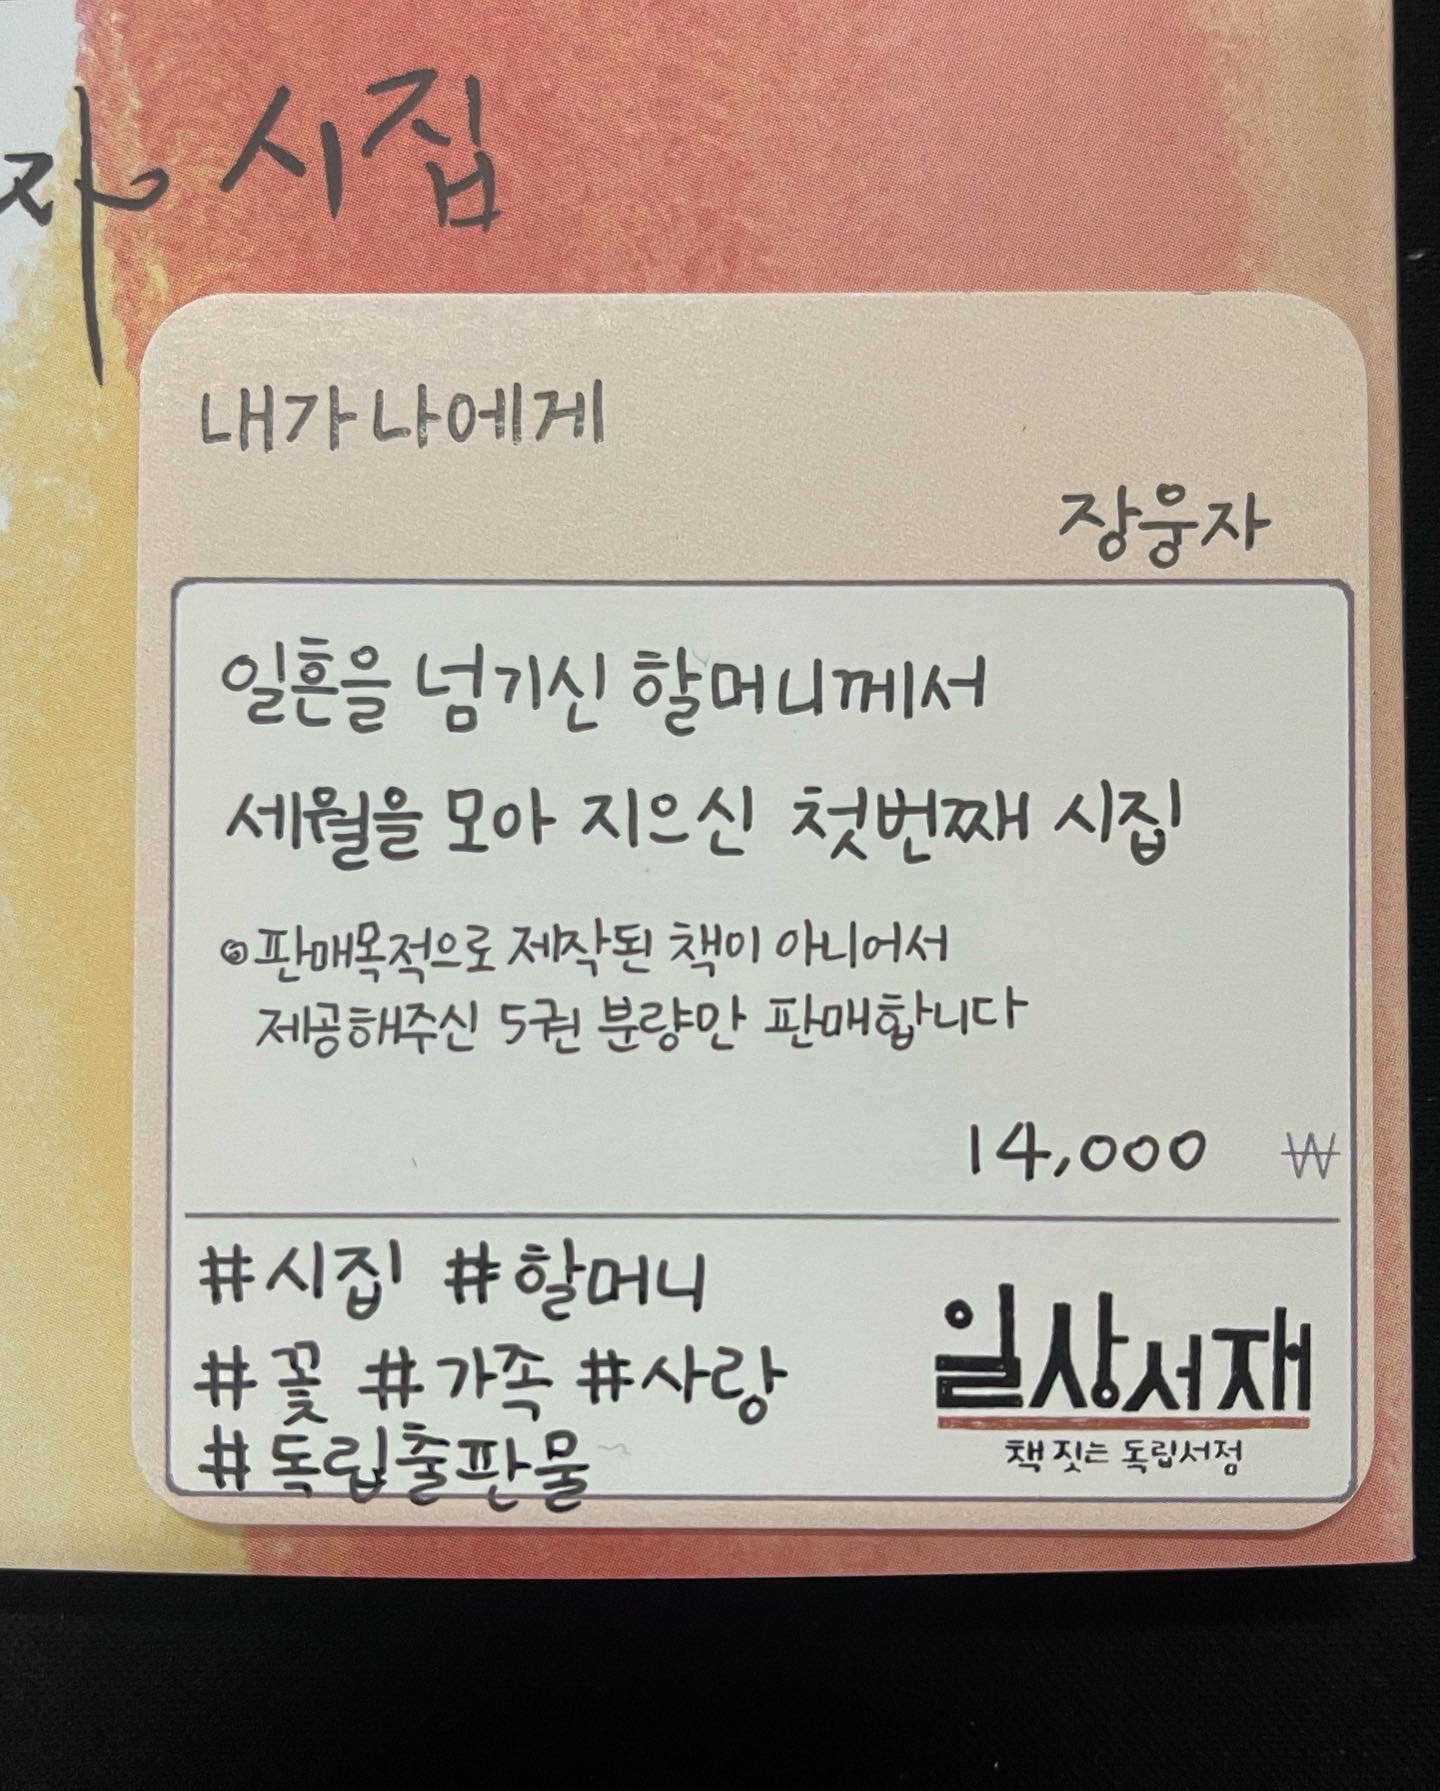 자 시집
내가 나에게
장웅자
일흔을 넘기신 할머니께서
세월을 모아 지으신 첫번째 시집
판매목적으로 제작된 책이 아니어서
제공해주신 5권 분량만 판매합니다
14,000 ₩
#시집 #할머니
#꽃 #가족 #사랑
#독립출판물
일상서재
책 짓는 독립서점